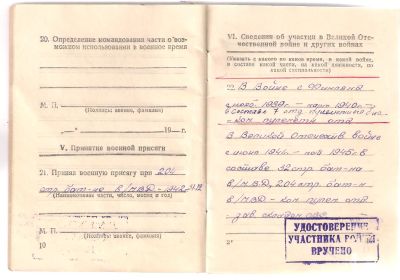 20. Определение командования части о воз-
можном использовании в военное время
М. П.
(Подпись: звание, фамилия)
„ “ 19 г.
V. Принятие военной присяги
21. Принял военную присягу при 204
стр. бат-не в/МВД - 1942
(Наименование части, число, месяц и год)
М. П.
(Подпись: звание, фамилия)
10
VI. Сведения об участии в Великой Оте-
чественной войне и других войнах
(Указать с какого по какое время, в какой войне,
в составе какой части, на какой должности, по
какой специальности)
22 В войне с Финлянд
1939г. - март 1940г.
в составе 7 отд.
ком. пулеметн отд
В Великой Отечествен войне
с июня 1941г. - 1945г. в
составе 32 стр бат-на
в/МВД, 204 стр бат-на
в/МВД - ком. пулем отд
зав. складом
УДОСТОВЕРЕНИЕ
УЧАСТНИКА ВОЙНЫ
ВРУЧЕНО
2*